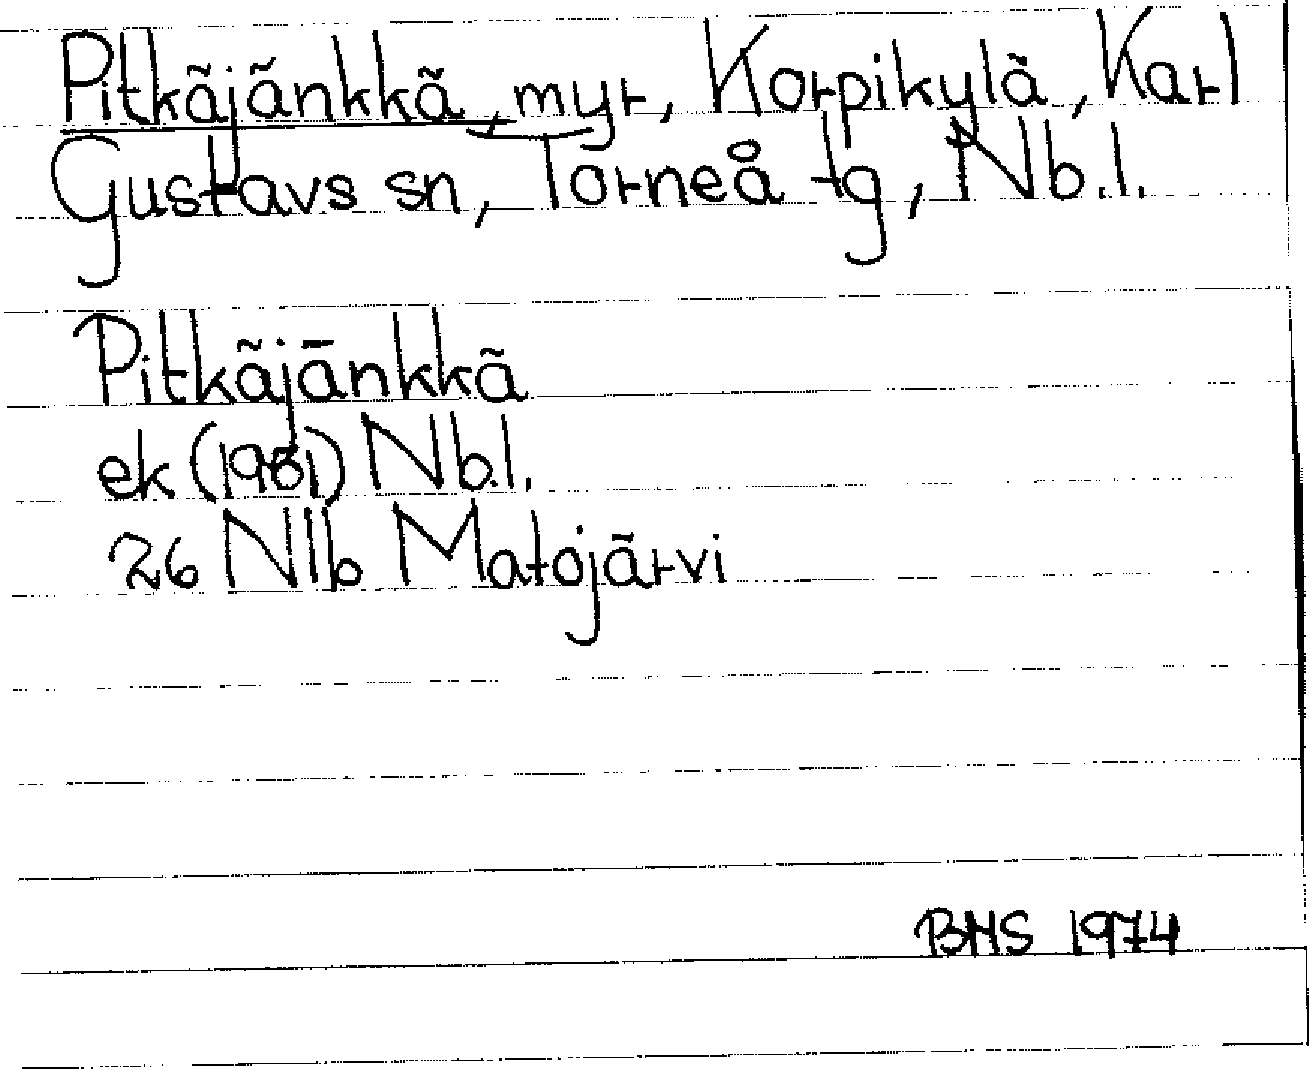 Pitkäjänkkä, myr, Korpikylä, Karl
Gustavs sn, Torneå tg, Nb.l.
Pitkäjänkkä
ek (1961) Nb.l.
26 N1b Matojärvi
BHS 1974